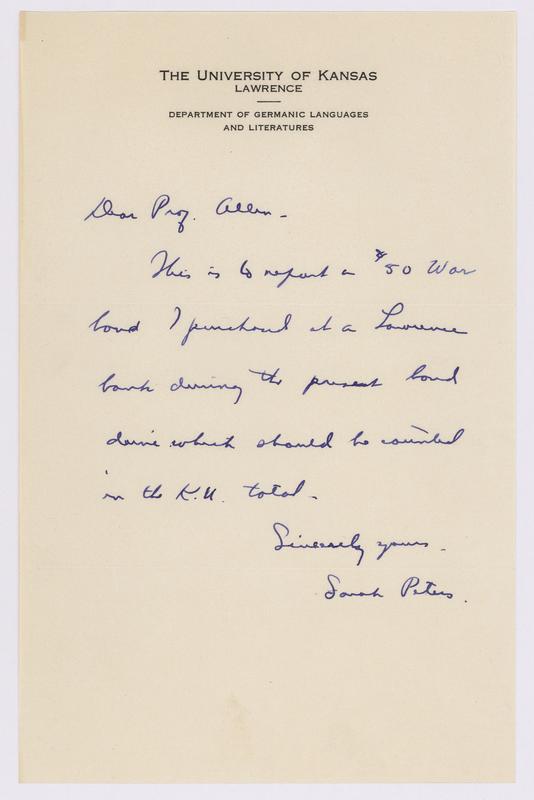 THE UNIVERSITY OF KANSAS
LAWRENCE
DEPARTMENT OF GERMANIC LANGUAGES
AND LITERATURES
Dear Prof. Allen -
This is to report a $50 War
bond I purchased at a Lawrence
bank during the present bond
drive which should be counted
in the K.U. total -
Sincerely yours -
Sarah Peters.